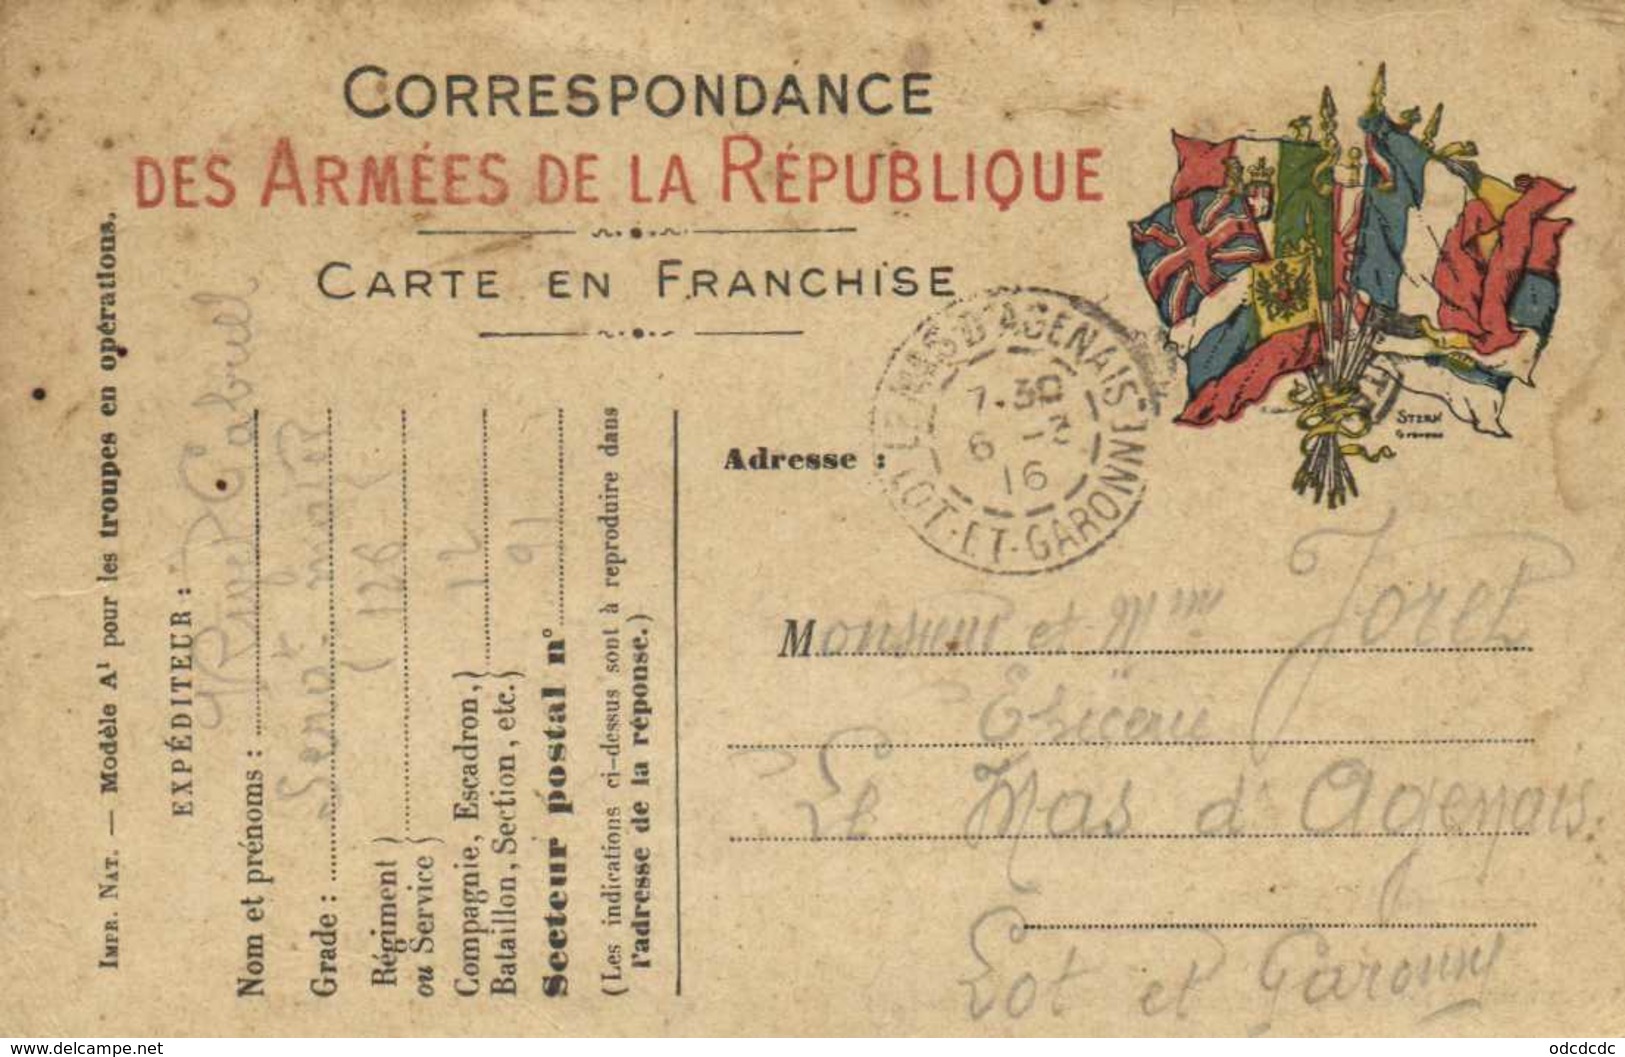 CORRESPONDANCE
DES ARMÉES DE LA RÉPUBLIQUE
CARTE EN FRANCHISE
LE MAS D'AGENAIS
7.30
6 - 3
16
LOT-ET-GARONNE
STERN
Graveur
IMPR. NAT. — Modèle A¹ pour les troupes en opérations.
EXPÉDITEUR :
Nom et prénoms : Gabriel
Grade : major
Régiment } 128
ou Service }
Compagnie, Escadron, } 12
Bataillon, Section, etc. }
Secteur postal n° 91
(Les indications ci-dessus sont à reproduire dans
l'adresse de la réponse.)
Adresse :
Monsieur et Mme Joret
Epicerie
Le Mas d'Agenais.
Lot et Garonne
www.delcampe.net
odcdcdc